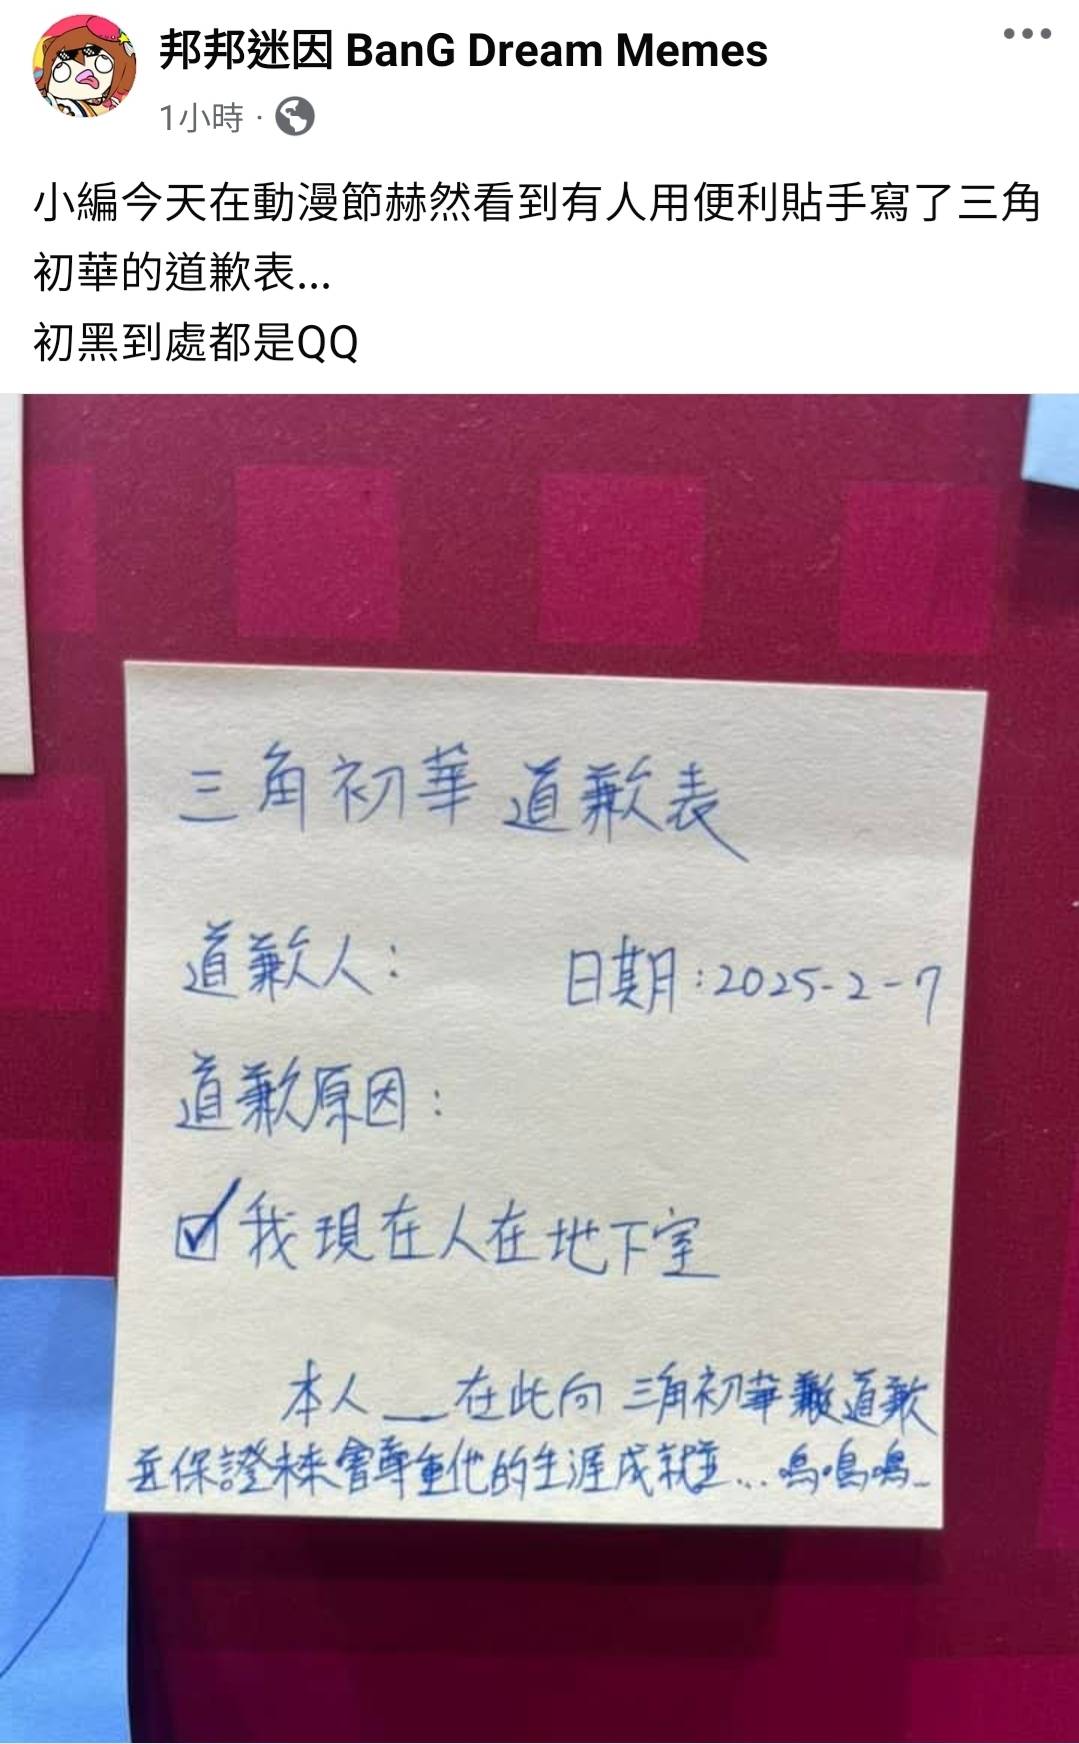 邦邦迷因 BanG Dream Memes
1小時 ·
小編今天在動漫節赫然看到有人用便利貼手寫了三角
初華的道歉表...
初黑到處都是QQ
三角初華 道歉表
道歉人： 日期：2025-2-7
道歉原因：
☑我現在人在地下室
本人__在此向 三角初華 道歉
並保證未來會尊重他的生涯成就...嗚嗚嗚_